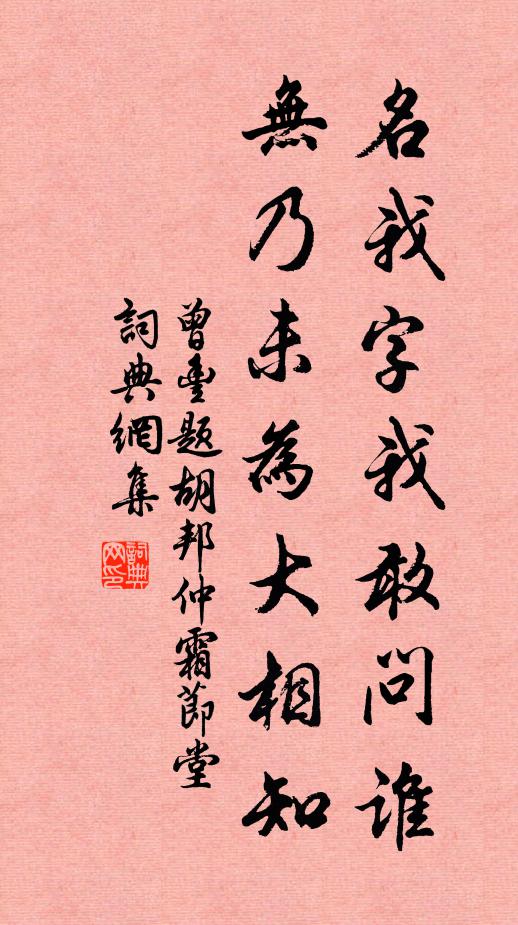 名我字我敢問誰
無乃未為大相知
曾豐題胡邦仲霜節堂
詞典網集
詞典網印